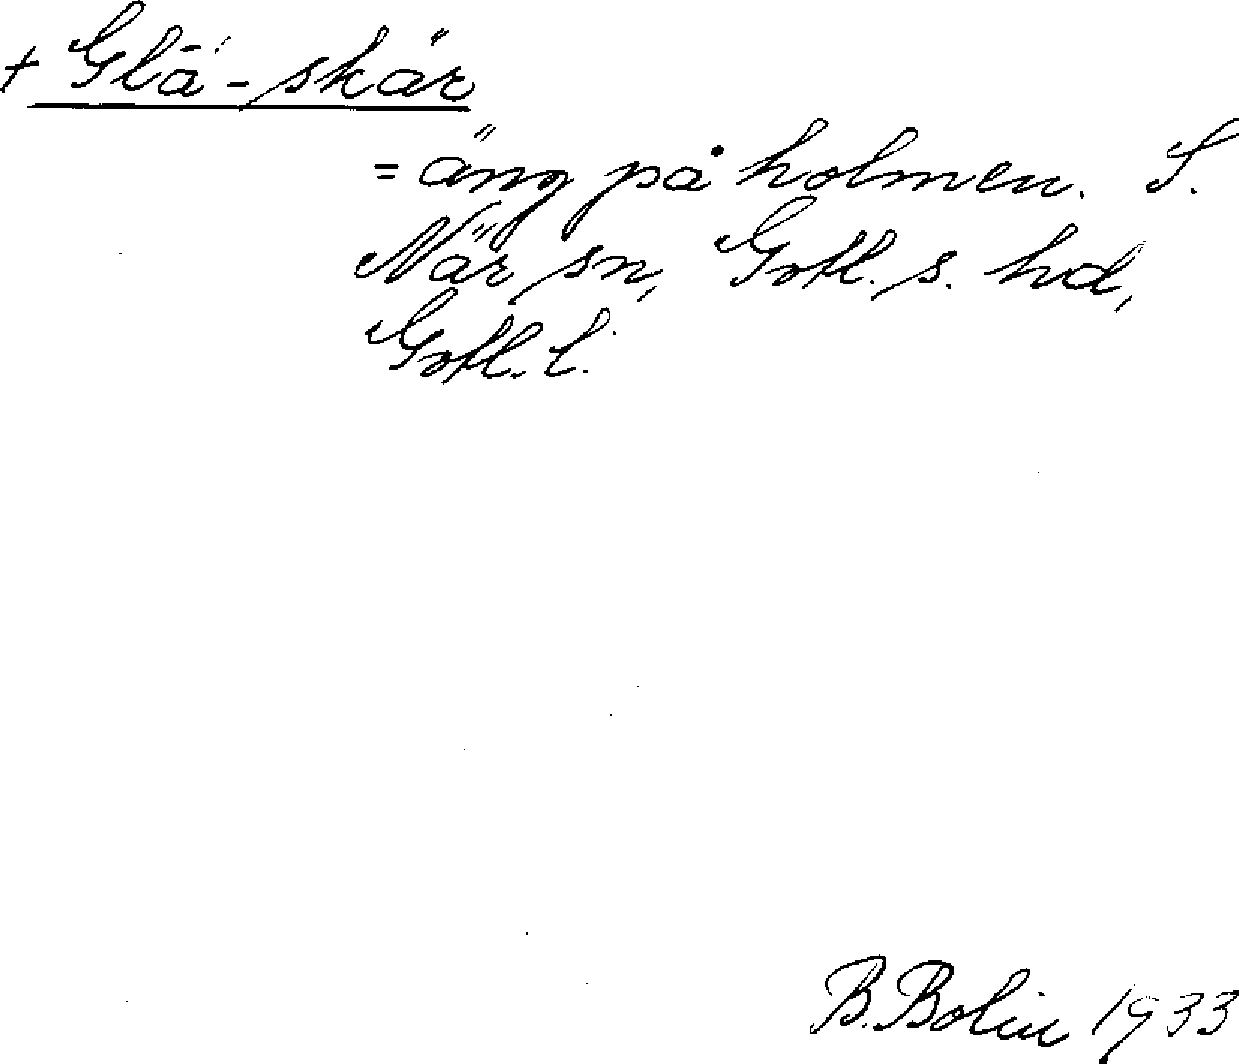 + Glā-skär
= äng på holmen. S.
När sn, Gotl. s. hd,
Gotl. l.
B. Bolin 1933